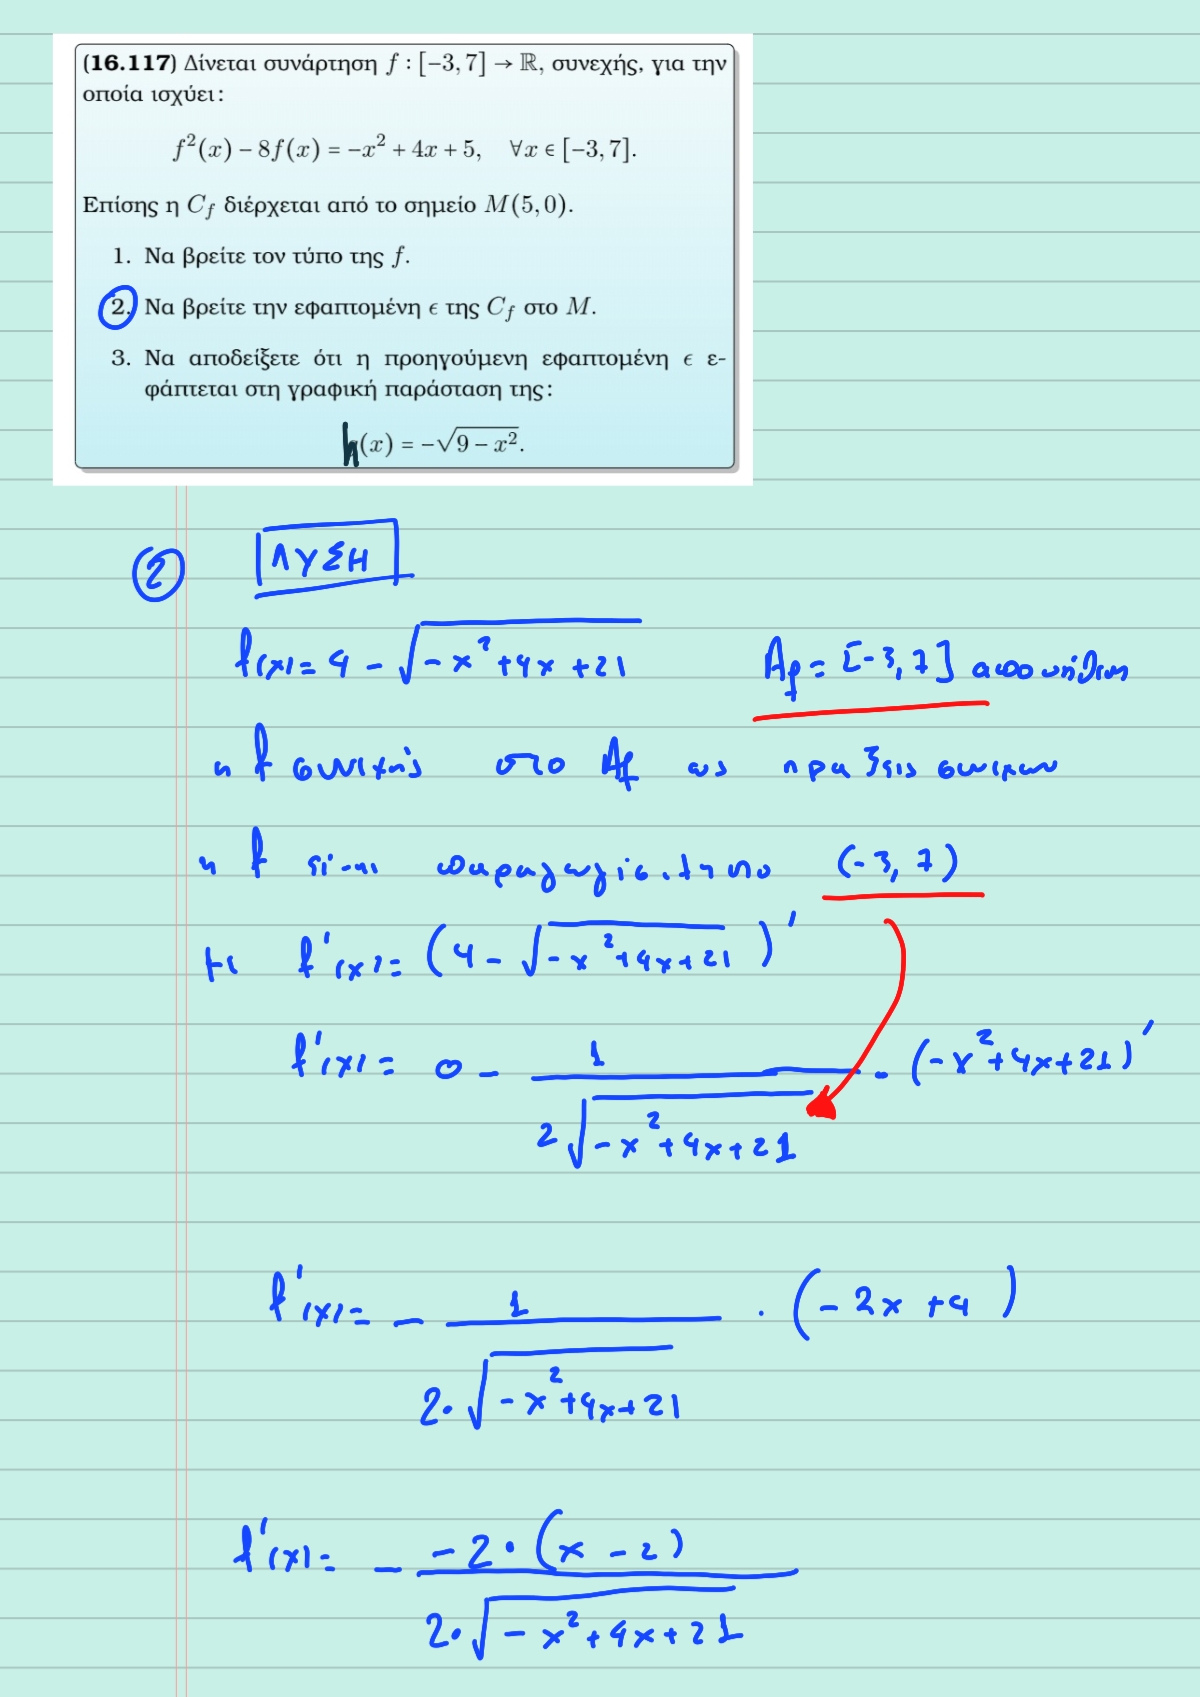 (16.117) Δίνεται συνάρτηση f : [−3, 7] → ℝ, συνεχής, για την
οποία ισχύει:
f²(x) − 8f(x) = −x² + 4x + 5, ∀x ∈ [−3, 7].
Επίσης η C_f διέρχεται από το σημείο M(5, 0).
1. Να βρείτε τον τύπο της f.
2. Να βρείτε την εφαπτομένη ϵ της C_f στο M.
3. Να αποδείξετε ότι η προηγούμενη εφαπτομένη ϵ ε-
φάπτεται στη γραφική παράσταση της:
h(x) = −√(9 − x²).
2 ΛΥΣΗ
f(x) = 4 − √(-x²+4x+21) A_f = [-3, 7]
η f συνεχής στο A_f ως πράξεις συνεχών
η f είναι παραγωγίσιμη στο (-3, 7)
με f'(x) = (4 − √(-x²+4x+21))'
f'(x) = 0 − 1/(2√(-x²+4x+21)) · (-x²+4x+21)'
f'(x) = − 1/(2·√(-x²+4x+21)) · (-2x+4)
f'(x) = − (-2·(x−2))/(2·√(-x²+4x+21))